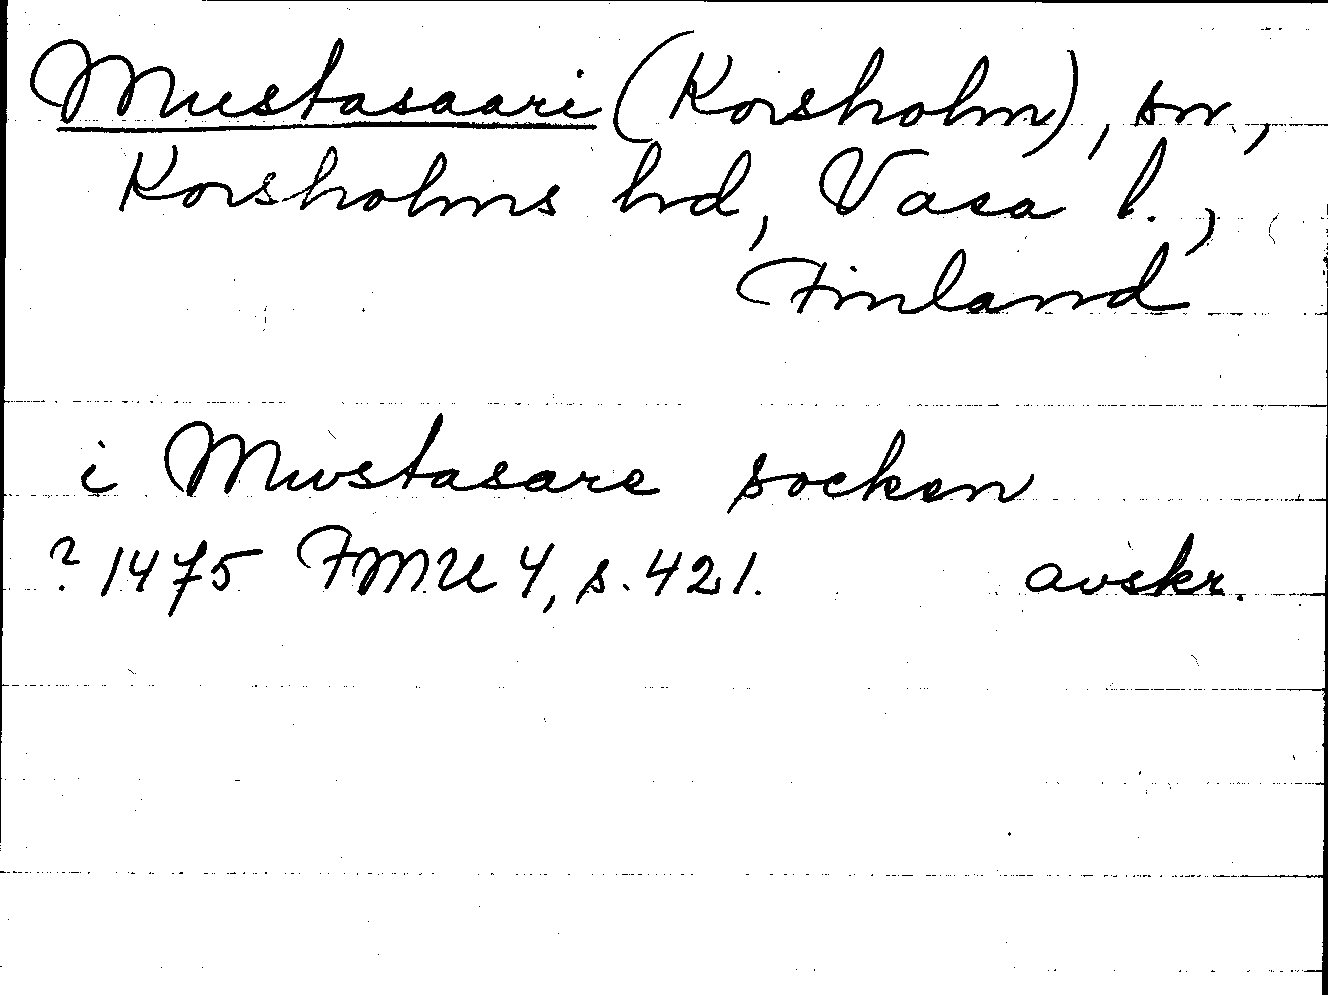 Mustasaari (Korsholm), sn,
Korsholms hd, Vasa l.,
Finland
i Mwstasare socken
? 1475 FMU 4, s. 421. avskr.